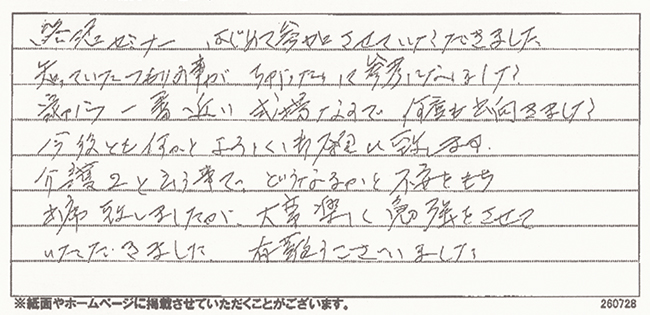 セミナー はじめて参加させていただきました
知っていたつもりの事が ちがったりして参考になりました
家から一番近い式場なので 何度も出向きました
今後とも何かとよろしくお願い致します.
介護2と云う事で、どうなるかと不安をもち
出席致しましたが、大変楽しく勉強をさせて
いただきました 有難うございました
※紙面やホームページに掲載させていただくことがございます。
260728